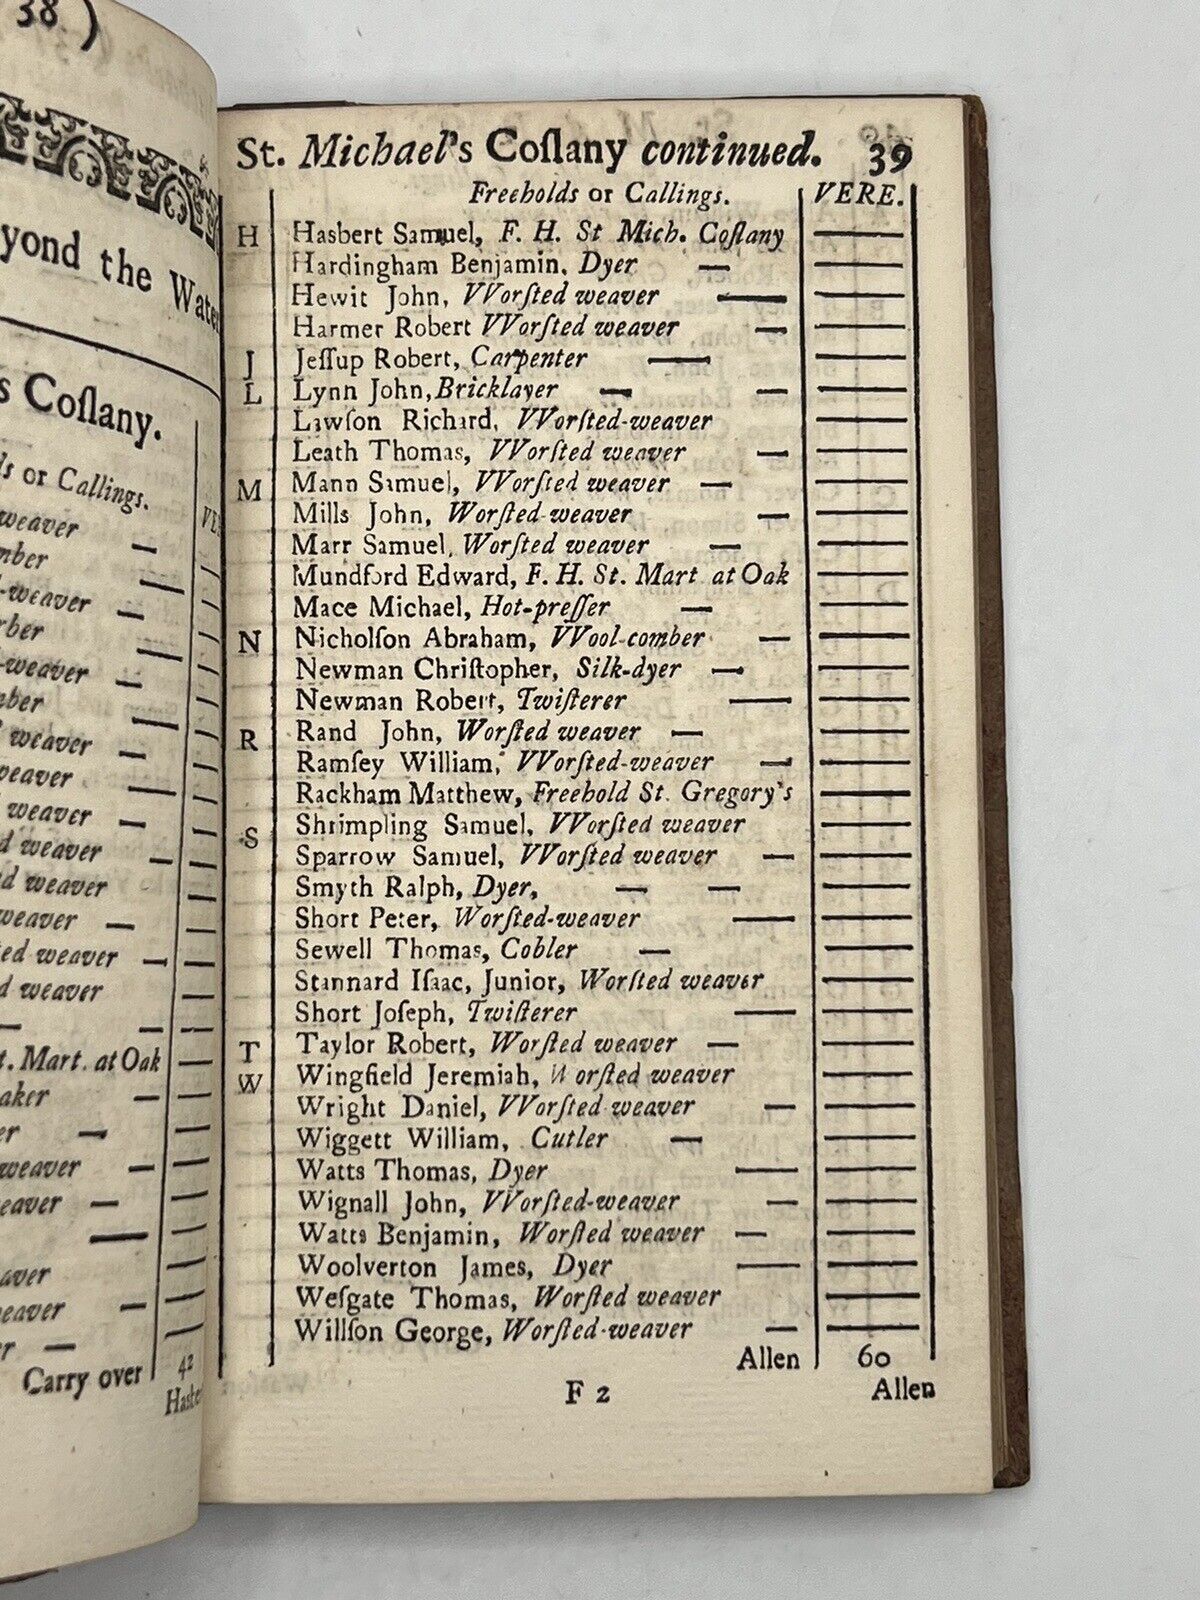 38 )
yond the Water
s Coſlany.
ds or Callings.
weaver
mber
-weaver
rber
-weaver
mber
weaver
weaver
weaver
d weaver
d weaver
weaver
ted weaver
d weaver
t. Mart. at Oak
aker
er
weaver
eaver
aver
weaver
r
Carry over 42
St. Michael's Coſlany continued. 39
Freeholds or Callings. VERE.
H Hasbert Samuel, F. H. St Mich. Coſlany —
Hardingham Benjamin, Dyer — —
Hewit John, VVorſted weaver — —
Harmer Robert VVorſted weaver — —
J Jeſſup Robert, Carpenter — —
L Lynn John, Bricklayer — — —
Lawſon Richard, VVorſted-weaver —
Leath Thomas, VVorſted weaver — —
M Mann Samuel, VVorſted weaver — —
Mills John, Worſted-weaver — —
Marr Samuel, Worſted weaver — —
Mundford Edward, F. H. St. Mart at Oak —
Mace Michael, Hot-preſſer — —
N Nicholſon Abraham, VVool-comber — —
Newman Chriſtopher, Silk-dyer — —
Newman Robert, Twiſterer — —
R Rand John, Worſted weaver — —
Ramſey William, VVorſted-weaver — —
Rackham Matthew, Freehold St. Gregory's —
S Shrimpling Samuel, VVorſted weaver —
Sparrow Samuel, VVorſted weaver — —
Smyth Ralph, Dyer, — — —
Short Peter, Worſted-weaver — —
Sewell Thomas, Cobler — —
Stannard Iſaac, Junior, Worſted weaver —
Short Joſeph, Twiſterer — —
T Taylor Robert, Worſted weaver — —
W Wingfield Jeremiah, Worſted weaver —
Wright Daniel, VVorſted-weaver — —
Wiggett William, Cutler — —
Watts Thomas, Dyer — —
Wignall John, VVorſted-weaver — —
Watts Benjamin, Worſted weaver — —
Woolverton James, Dyer — —
Weſgate Thomas, Worſted weaver —
Willſon George, Worſted-weaver — —
Allen 60
F 2 Allen